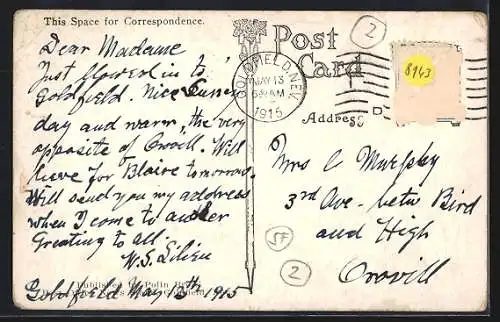 This Space for Correspondence.
Dear Madame
Just flowed in to
Goldfield. Nice Sunny
day and warm, the very
opposite of Orovill. Will
leave for Blaire tomorrow.
Will send you my address
when I come to anker
Greating to all.
Goldfield May 13th 1915
Published by Polin
Post
Card
GOLDFIELD, NEV.
MAY 13
AM
1915
Address
2
8143
D
Mrs C Murphy
3rd Ave. betw Bird
and High
Orovill
2